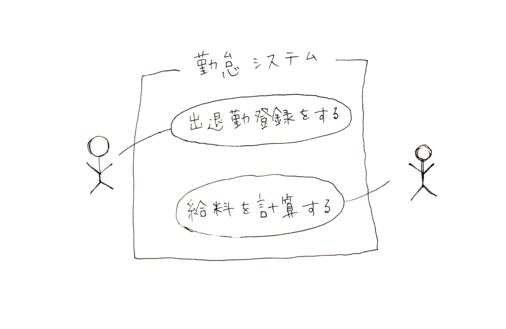 勤怠システム
出退勤登録をする
給料を計算する